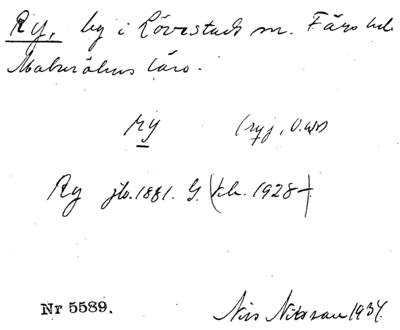 Ry, by i Lövestads sn. Färs hd.
Malmöhus län.
ry (ryj, 
Ry jb. 1881. G. 1928–
Nr 5589. Nils Nilsson 1934.